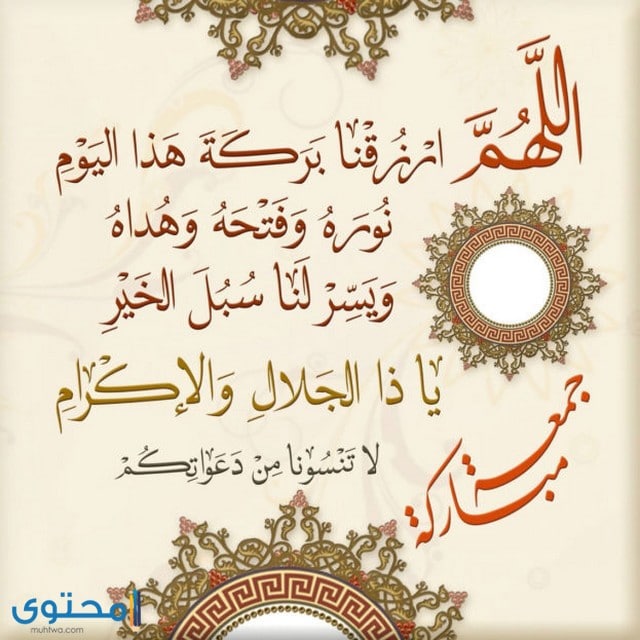 اللَّهُمَّ ارْزُقْنَا بَرَكَةَ هَذَا اليَوْمِ
نُورَهُ وَفَتْحَهُ وَهُدَاهُ
وَيَسِّرْ لَنَا سُبُلَ الخَيْرِ
يا ذا الجَلالِ وَالإكْرَامِ
جمعة
مباركة
لا تَنْسُونا مِنْ دَعَوَاتِكُمْ
محتوى
muhtwa.com